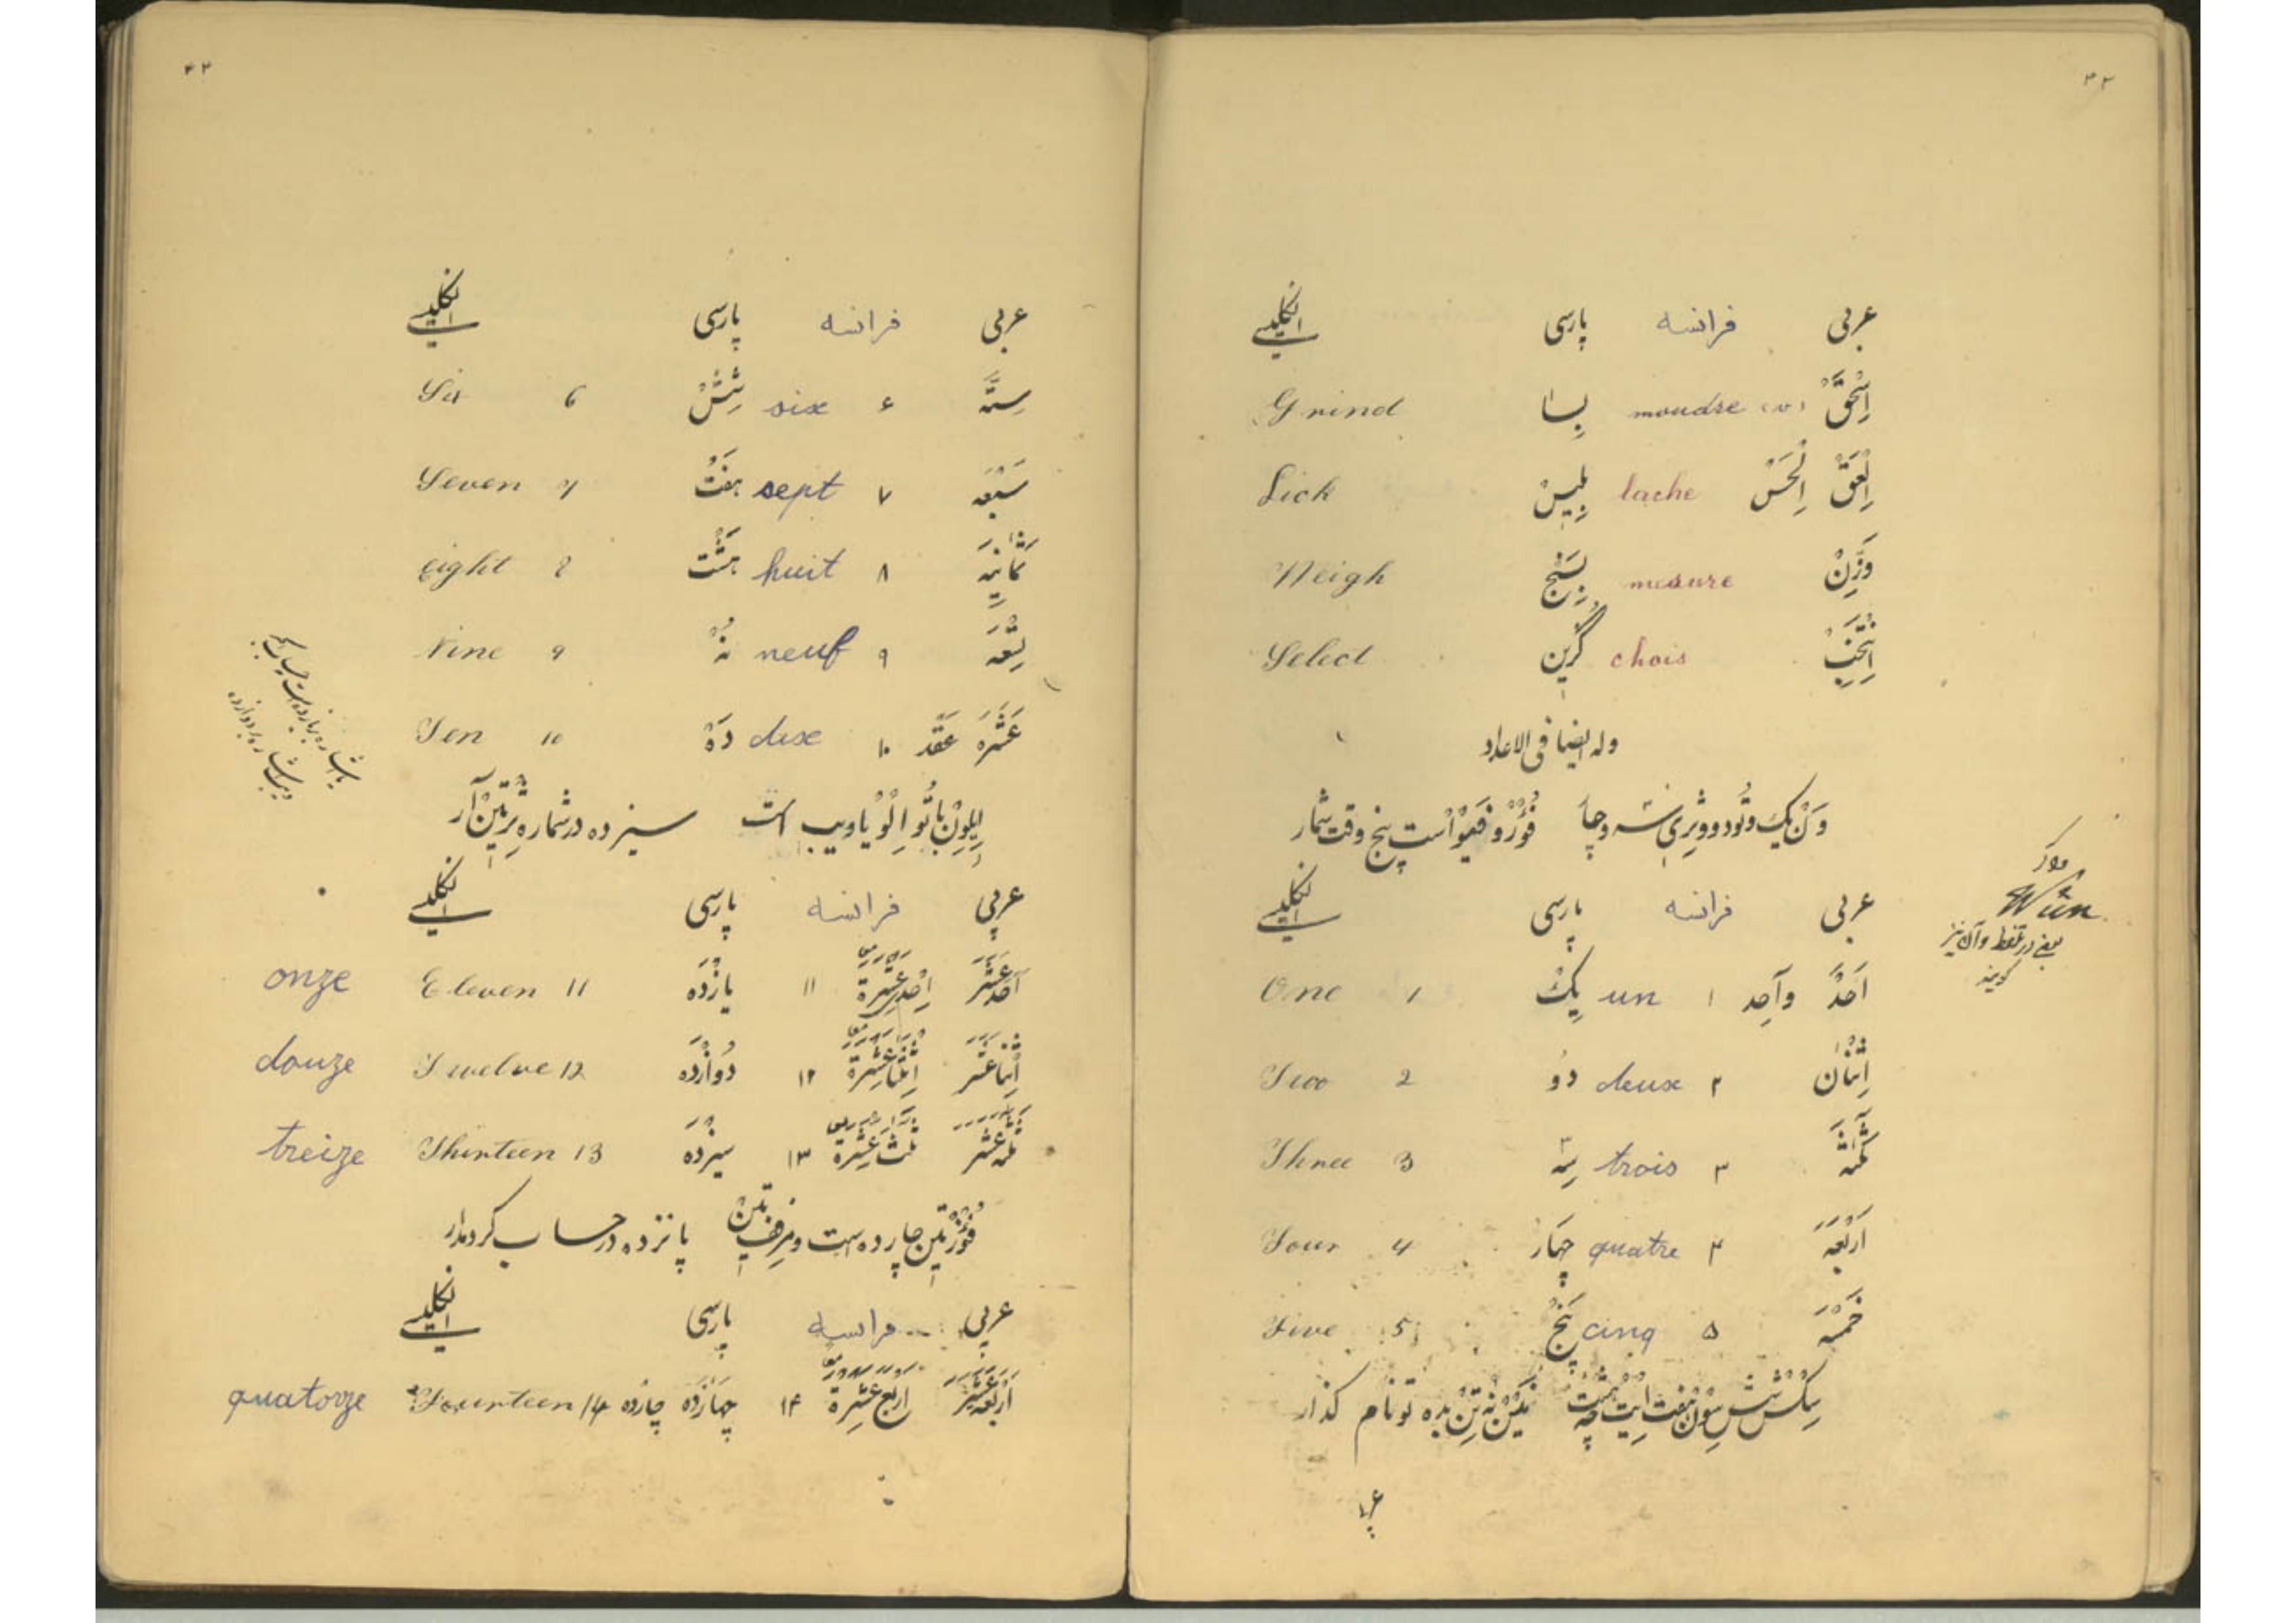 ۳۲
عربی فرانسه پارسی انگلیسی
اِسْحَقْ moudre (v) بِسا Grind
اِلْعَقْ اِلْحَسْ lache بِلیسْ Lick
وَزِّنْ mesure بِسَنْج Weigh
اِنْتَخِبْ chois گُزین Select
وله ایضا فی الاعداد
وَنْ یک و تُو دو و ثِری سه و چار فُوْرْ و فَیْوْ است پنج وقت شمار
Wun
یعنی در تلفظ وآن نیز
گویند
عربی فرانسه پارسی انگلیسی
اَحَدْ وآحِد ۱ un یِکْ 1 One
اِثْنان ۲ deux دُو 2 Two
ثَلٰثَة ۳ trois سِه 3 Three
اَرْبَعَه ۴ quatre چَهار 4 Four
خَمْسَه ۵ cinq پَنْج 5 Five
سِکْسْ شش سِوِنْ هفت اِیْتْ هشت نَیْنْ نه تِنْ بده تو نام گذار
۳۳
عربی فرانسه پارسی انگلیسی
سِتَّه ۶ six شِشْ 6 Six
سَبْعَه ۷ sept هَفتْ 7 Seven
ثَمانِیَه ۸ huit هَشْت 8 eight
تِسْعَه ۹ neuf نُهْ 9 Nine
عَشَرَه عَقْد ۱۰ dix دَهْ 10 Ten
اِیلِوِنْ با تُوِاِلْوْ یا ویب است سیزده در شماره ثِرْتِیْنْ آر
عربی فرانسه پارسی انگلیسی
اَحَدَ عَشَرَ اِحْدی عَشِرَة ۱۱ یازْدَه 11 Eleven onze
اِثْنا عَشَر اِثْنَتا عَشِرَة ۱۲ دُوازْدَه 12 Twelve douze
ثَلٰثَه عَشَر ثَلٰث عَشِرَة ۱۳ سیزْدَه 13 Thirteen treize
فُوْرْتِیْنْ چارده است و فِفْتِیْنْ پانزده در حساب کردمدار
عربی فرانسه پارسی انگلیسی
اَرْبَعَة عَشَر اَرْبَع عَشِرَة ۱۴ چهارْدَه چارْدَه 14 Fourteen quatorze